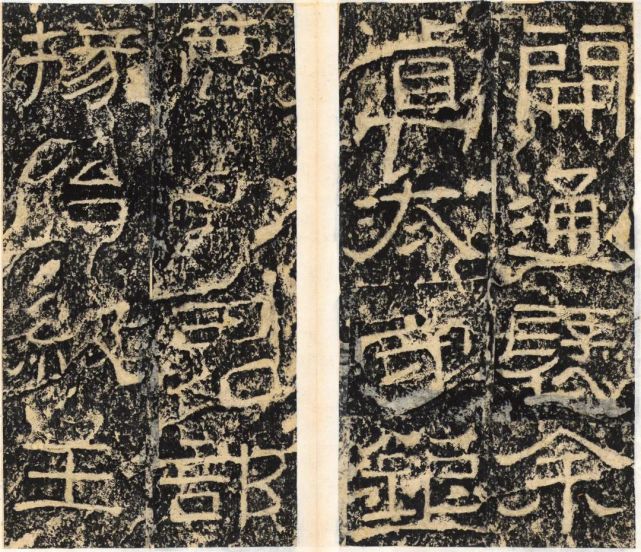 開通褒余
道太守鉅
鹿鄐君部
掾治級王